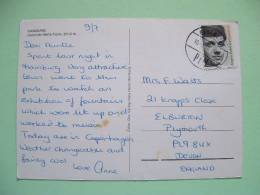 HAMBURG
9/7
Dear Auntie
Spent last night in
Hamburg. Very attractive
town went to this
park to watch an
exhibition of fountains
which were lit up and
worked to music.
Today are in Copenhagen
Weather changeable and
fairly cool
Love Anne
Mrs F. Watts
21 Knapps Close
ELBURTON
Plymouth
PL9 8UX
DEVON
ENGLAND